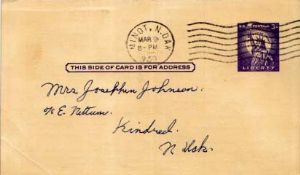 MINOT, N. DAK.
MAR
8-PM
U.S. POSTAGE 3¢
LIBERTY
THIS SIDE OF CARD IS FOR ADDRESS
Mrs Josephin Johnson.
c/o E. Nettum.
Kindred.
N Dak.